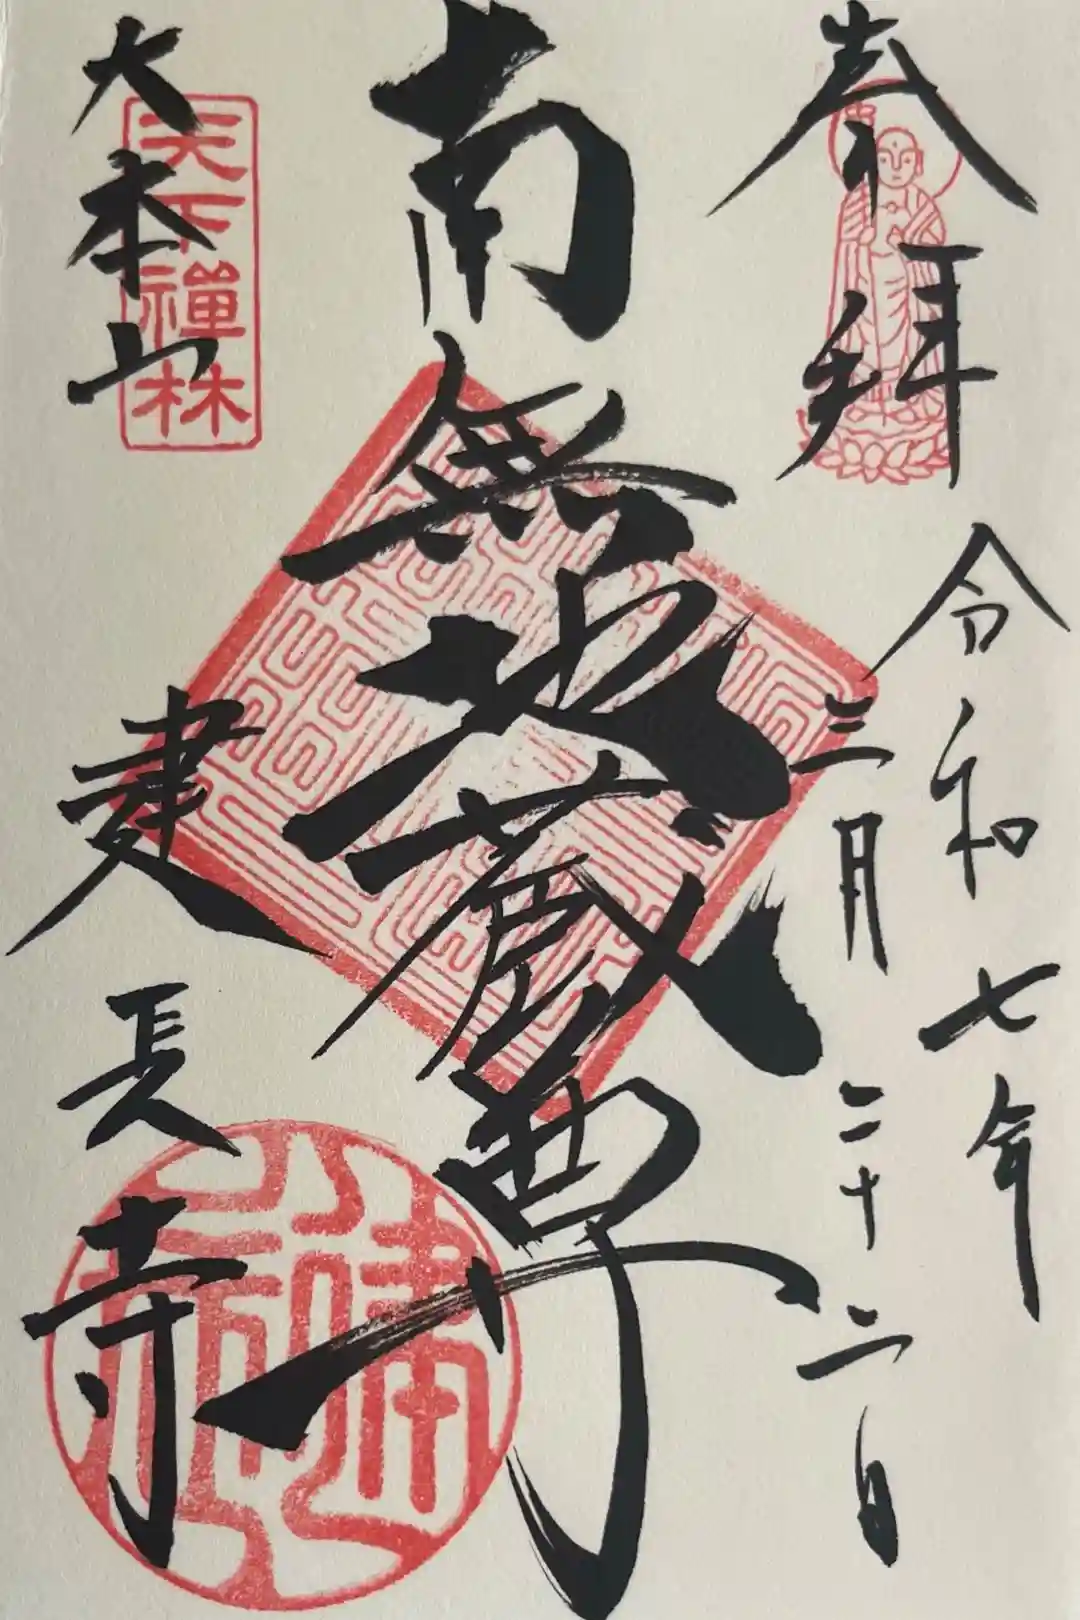 奉拝
令和七年
三月二十二日
南無地蔵尊
天下禅林
大本山
建長寺